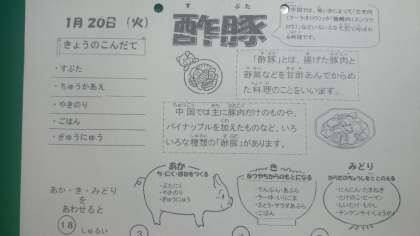 1月20日（火）
きょうのこんだて
・すぶた
・ちゅうかあえ
・やきのり
・ごはん
・ぎゅうにゅう
す ぶた
酢豚
「酢豚」とは、揚げた豚肉と
野菜などを甘酢あんでからめ
た料理のことをいいます。
中国では主に豚肉だけのものや、
パイナップルを加えたものなど、いろ
いろな種類の「酢豚」があります。
あか・き・みどり
をあわせると
18
しゅるい
あか
ち・にく・ほねをつくる
・ぶたにく
・やきのり
・ぎゅうにゅう
き
ねつやちからのもとになる
・でんぷん・あぶら
・ラーゆ・いりごま
・さとう・サラダあぶら
・ごはん
みどり
からだのちょうしをととのえる
・にんじん・たまねぎ
・たけのこ・ピーマン
・しいたけ・もやし
・チンゲンサイ・しょうが